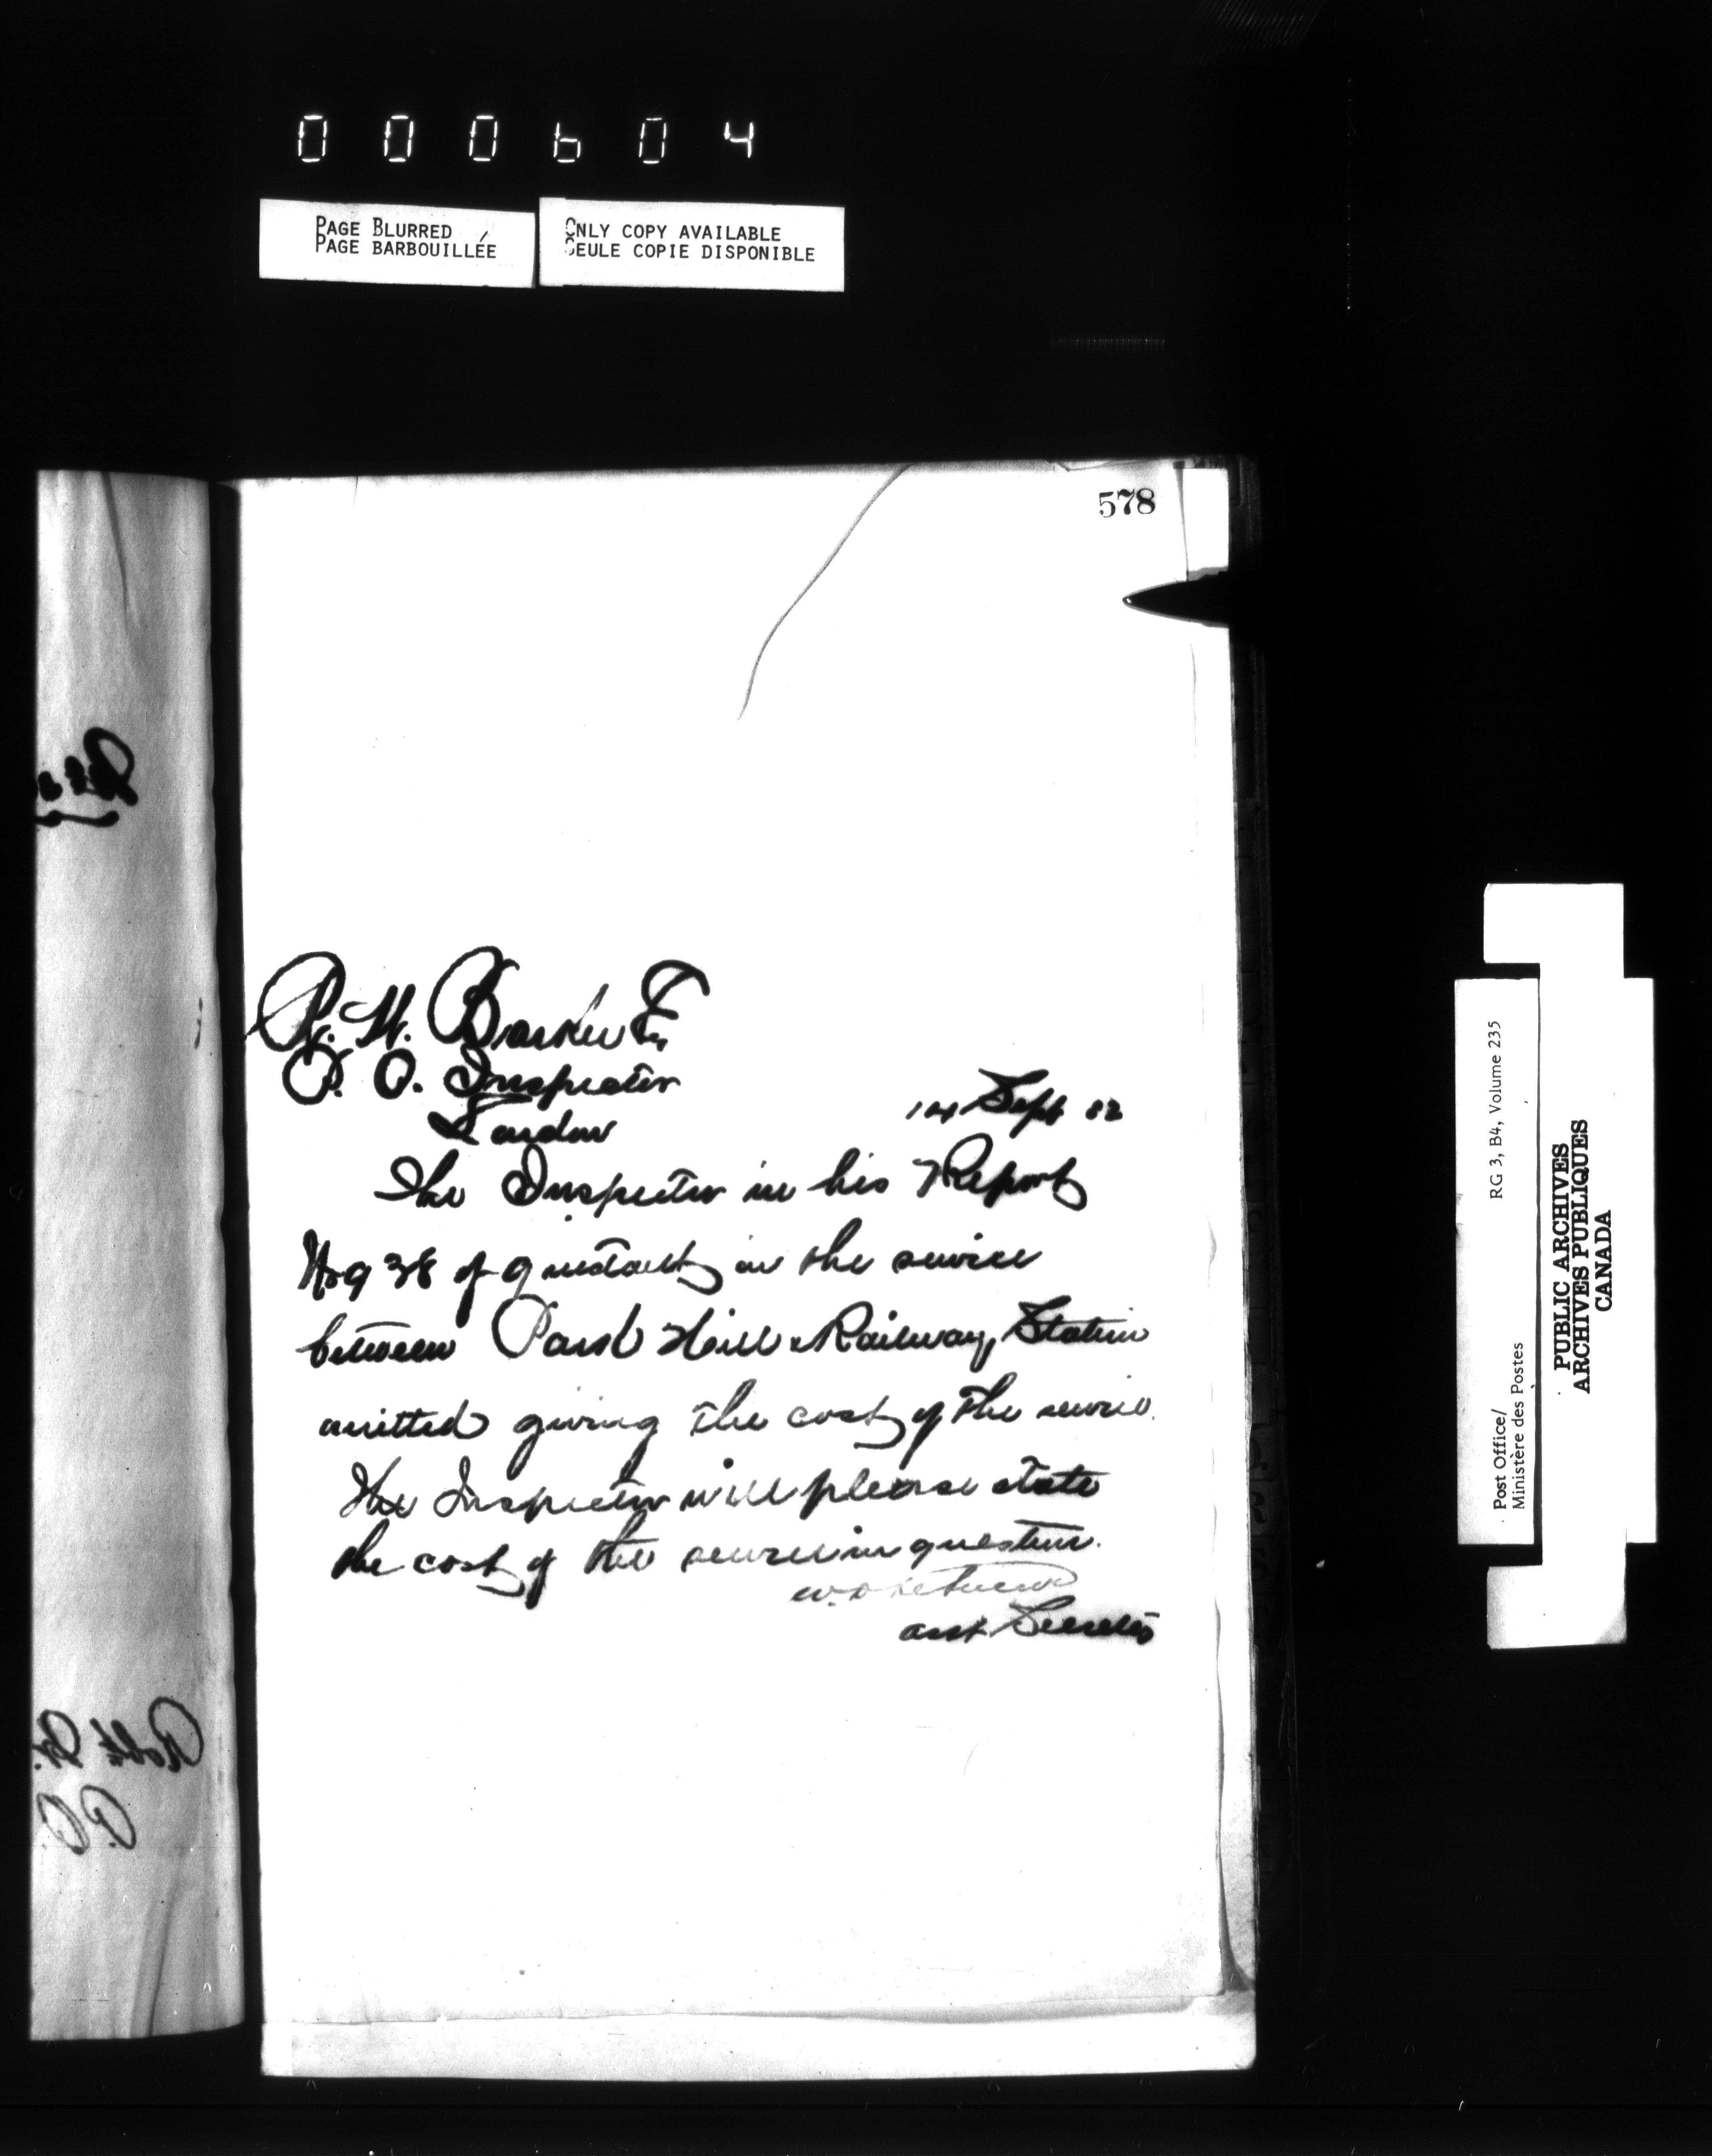 000604
PAGE BLURRED
PAGE BARBOUILLÉE
ONLY COPY AVAILABLE
SEULE COPIE DISPONIBLE
578
R. W. Barker Esq
P. O. Inspector
London
14 Sept 82
The Inspector in his Report
No 938 of 9 instant, in the service
between Park Hill & Railway Station
omitted giving the cost of the service.
The Inspector will please state
the cost of the service in question.
asst Secretary
RG 3, B4, Volume 235
Post Office/
Ministère des Postes
PUBLIC ARCHIVES
ARCHIVES PUBLIQUES
CANADA